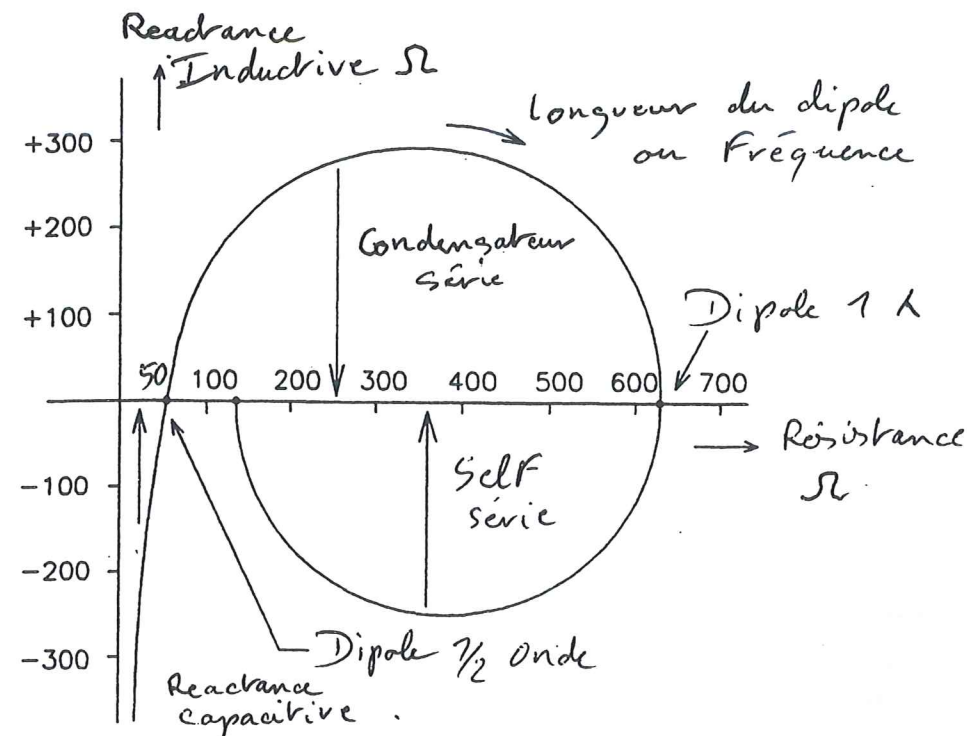 Reactance
Inductive Ω
Longueur du dipole
ou Fréquence
+300
+200
+100
Condensateur
série
Dipole 1 λ
50 100 200 300 400 500 600 700
Résistance
Ω
-100
-200
-300
Self
série
Dipole 1/2 onde
Reactance
capacitive .